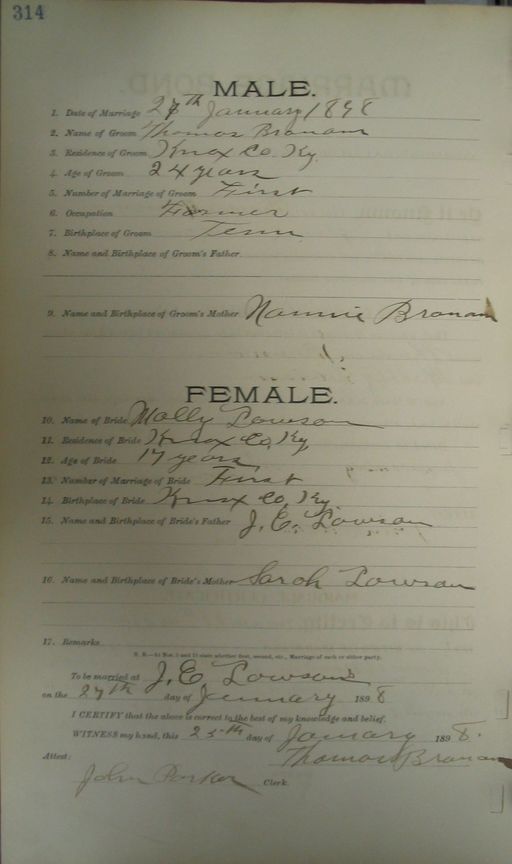 314
MALE.
1. Date of Marriage 27th January 1898
2. Name of Groom Thomas Branam
3. Residence of Groom Knox Co. Ky.
4. Age of Groom 24 years
5. Number of Marriage of Groom First
6. Occupation Farmer
7. Birthplace of Groom Tenn
8. Name and Birthplace of Groom's Father.
9. Name and Birthplace of Groom's Mother Nannie Branam
FEMALE.
10. Name of Bride Molly Lawson
11. Residence of Bride Knox Co, Ky
12. Age of Bride 17 years
13. Number of Marriage of Bride First
14. Birthplace of Bride Knox Co, Ky.
15. Name and Birthplace of Bride's Father J. E. Lawson
16. Name and Birthplace of Bride's Mother Sarah Lawson
17. Remarks
N. B.—At Nos. 5 and 13 state whether first, second, etc., Marriage of each or either party.
To be married at J. E Lawson's
on the 27th day of January 1898
I CERTIFY that the above is correct to the best of my knowledge and belief.
WITNESS my hand, this 25th day of January 1898.
Thomas Branam
Attest:
John Parker Clerk.